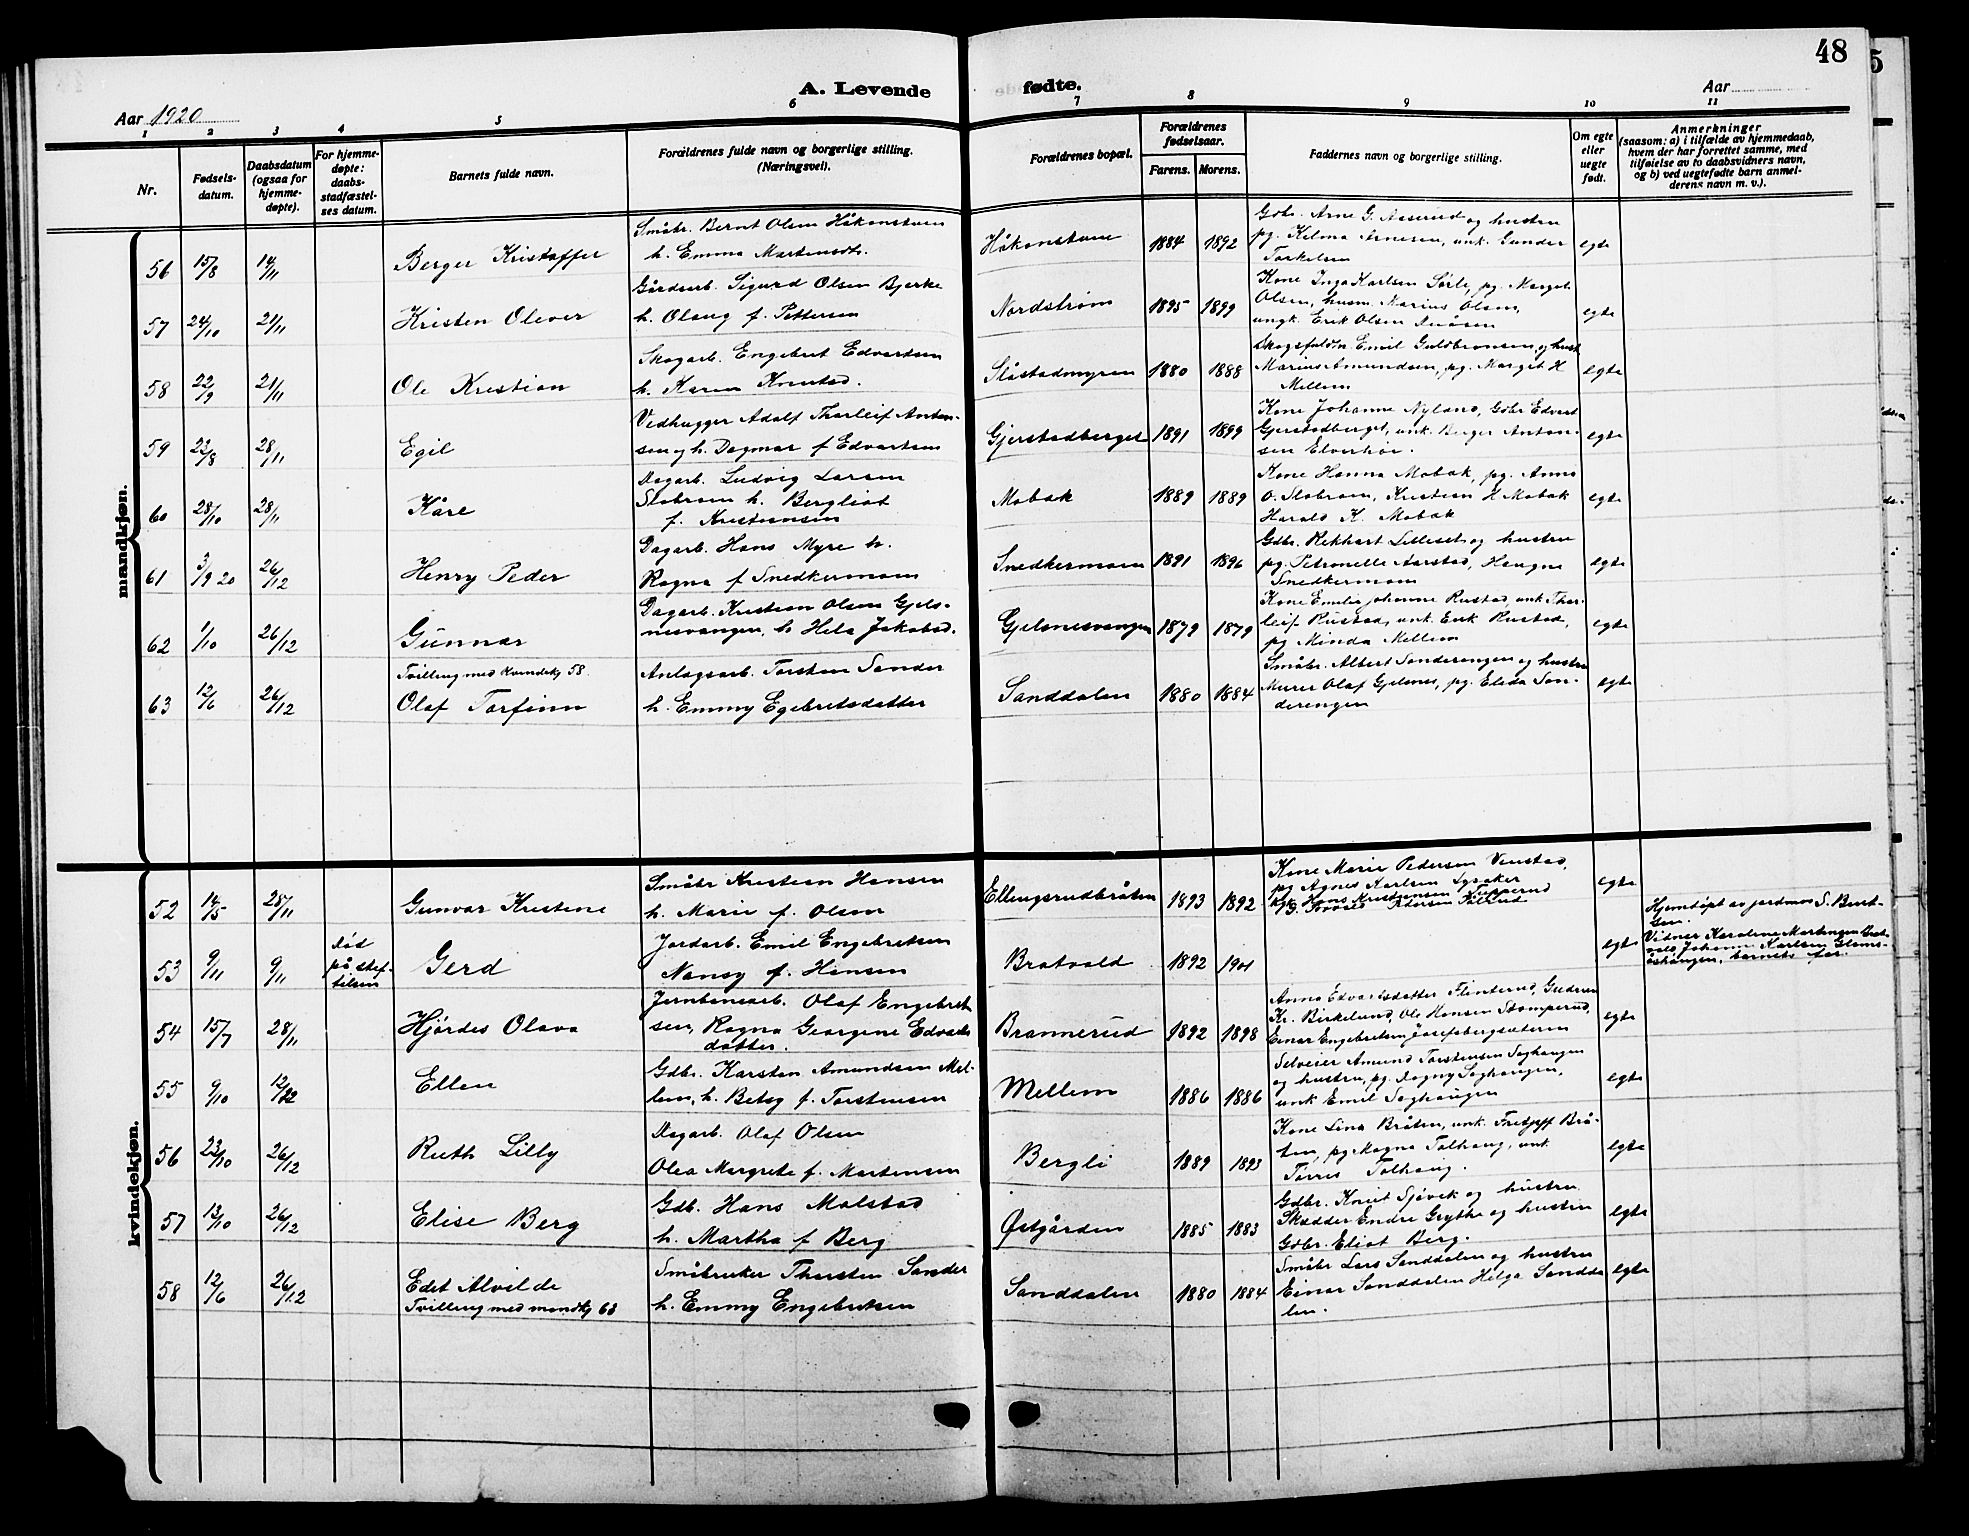 48
A. Levende fødte.
Aar 1920
Aar
1 2 3 4 5 6 7 8 9 10 11
Nr.
Fødsels-
datum.
Daabsdatum
(ogsaa for
hjemme-
døpte).
For hjemme-
døpte:
daabs-
stadfæstel-
ses datum.
Barnets fulde navn.
Forældrenes fulde navn og borgerlige stilling.
(Næringsvei).
Forældrenes bopæl.
Forældrenes
fødselsaar.
Farens. Morens.
Faddernes navn og borgerlige stilling.
Om egte
eller
uegte
født.
Anmerkninger
(saasom: a) i tilfælde av hjemmedaab,
hvem der har forrettet samme, med
tilføielse av to daabsvidners navn,
og b) ved uegtefødte barn anmel-
derens navn m. v.).
mandkjøn.
56 15/8 14/11 Berger Kristoffer
Småbr. Bernt Olsen Håkonstuen
h. Emma Martensdtr.
Håkonstuen 1884 1892
Gbr. Arne G. Aaserud og hustru
pg. Kilma Arnesen, unk. Gunder
Torkelsen
egte
57 24/10 21/11 Kristen Olever
Gårdsarb. Sigurd Olsen Bjerke
h. Olaug f. Pettersen
Nordstrøm 1895 1899
Kone Inga Karlsen Sørli, pg. Margit
Olsen, husm. Marius Olsen,
ungk. Erik Olsen
egte
58 22/9 21/11 Ole Kristian
Skogarb. Engebret Edvardsen
h. Karen Knutsd.
Slåstadmyren 1880 1888
Skogsfuldm. Emil Guldbransen og hust
Marius Amundsen, pg. Margit H
Mellem
egte
59 22/8 28/11 Egil
Vedhugger Adolf Tharleif Anton-
sen og h. Dagmar f Edvartsen
Gjerstadberget 1891 1899
Kone Johanne Nyland, Gbr Edvart
Gjerstadberget, unk. Berger Anton-
sen Elverhöi.
egte
60 28/10 28/11 Kåre
Dagarb. Ludvig Larsen
Slobraen h. Bergliot
f. Kristiansen
Mobak 1889 1889
Kone Hanna Mobak, pg. Anna
O. Slobraen, Kristian H Mobak
Harald K. Mobak
egte
61 3/9 20 26/12 Henry Peder
Dagarb. Hans Myre h.
Ragna f Snedkermoen
Snedkermoen 1891 1896
Gdbr. Rikhart Lilleset og hustru
pg. Petronelle Aarstad, Haugne
Snedkermoen
egte
62 1/10 26/12 Gunnar
Dagarb. Kristian Olsen Gjels-
nesvangen, h Hela Jakobsd.
Gjelsnesvangen 1879 1879
Kone Emelie Johanne Rustad, unk. Thor-
leif Rustad, unk. Erik Rustad,
pg Minda Mellem
egte
Tvilling med Kvindekj 58.
63 12/6 26/12 Olaf Torfinn
Anlagsarb. Torsten Sander
h. Emmy Egebretsdatter
Sanddalen 1880 1884
Småbr. Albert Sanderengen og hustru
Murer Olaf Gjelsnes, pg. Eleda San-
derengen
egte
kvindekjøn.
52 14/5 28/11 Gunvor Kristine
Småbr Kristian Hansen
h. Marie f. Olsen
Ellingsrudbråten 1893 1892
Kone Marie Pedersen Venstad,
pg Agnes Karlsen Lysaker
Hans Kristiansen
egte
53 9/11 9/11 død
på stif-
telsen
Gerd
Jordarb. Emil Engebretsen
Nancy f. Hansen
Bratvold 1892 1901
egte
Hjemdøpt av jordmor S. Bert-
sen.
Vidner Karoline Martinsen
Johanne Karlsen Gloms-
åshaugen, barnets far.
54 15/7 28/11 Hjørdes Olava
Jernbanearb. Olaf Engebret-
sen, Ragna Georgine Edvards-
datter.
Brannerud 1892 1898
Anna Edvardsdatter Flinterud, Gudrun
Kr. Birkelund, Ole Hansen Stamperud,
Einar Engebretsen Josefsbergsæteren
egte
55 9/10 12/12 Ellen
Gdbr. Karsten Amundsen Mel-
lem, h. Betsy f. Torstensen
Mellem 1886 1886
Selveier Amund Torstensen Saghaugen
og hustru, pg. Dagny Saghaugen,
unk Emil Saghaugen
egte
56 22/10 26/12 Ruth Lilly
Dagarb. Olaf Olsen
Olea Margrete f. Martinsen
Bergli 1889 1893
Kone Lina Bråten, unk. Fretjoff Brå-
ten, pg. Magna Tolhaug, unk.
Torris Tolhaug.
egte
57 13/10 26/12 Elise Berg
Gdb. Hans Molstad
h. Martha f Berg
Østgården 1885 1883
Gdbr. Knut Sjøvik og hustru
Skrædder Endre Grythe og hustru
Gdbr. Eliot Berg.
egte
58 12/6 26/12 Edit Alvilde
Tvilling med mandkj 63
Småbruker Thorsten Sander
h. Emmy Engebretsen
Sanddalen 1880 1884
Småbr Lars Sanddalen og hustru
Einar Sanddalen Helga Sandda
len.
egte